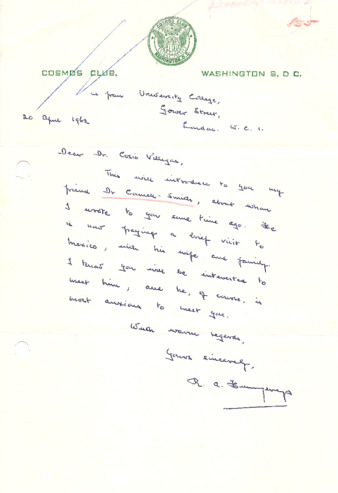 COSMOS CLUB
WASHINGTON D.C.
COSMOS CLUB, WASHINGTON 5, D C.
as from University College,
Gower Street,
London. W.C.1.
20 April 1962
Dear Dr. Cosío Villegas,
This will introduce to you my
friend Dr Connell-Smith, about whom
I wrote to you some time ago. He
is now paying a brief visit to
Mexico, with his wife and family.
I know you will be interested to
meet him, and he, of course, is
most anxious to meet you.
With warm regards,
Yours sincerely,
R. A. Humphreys